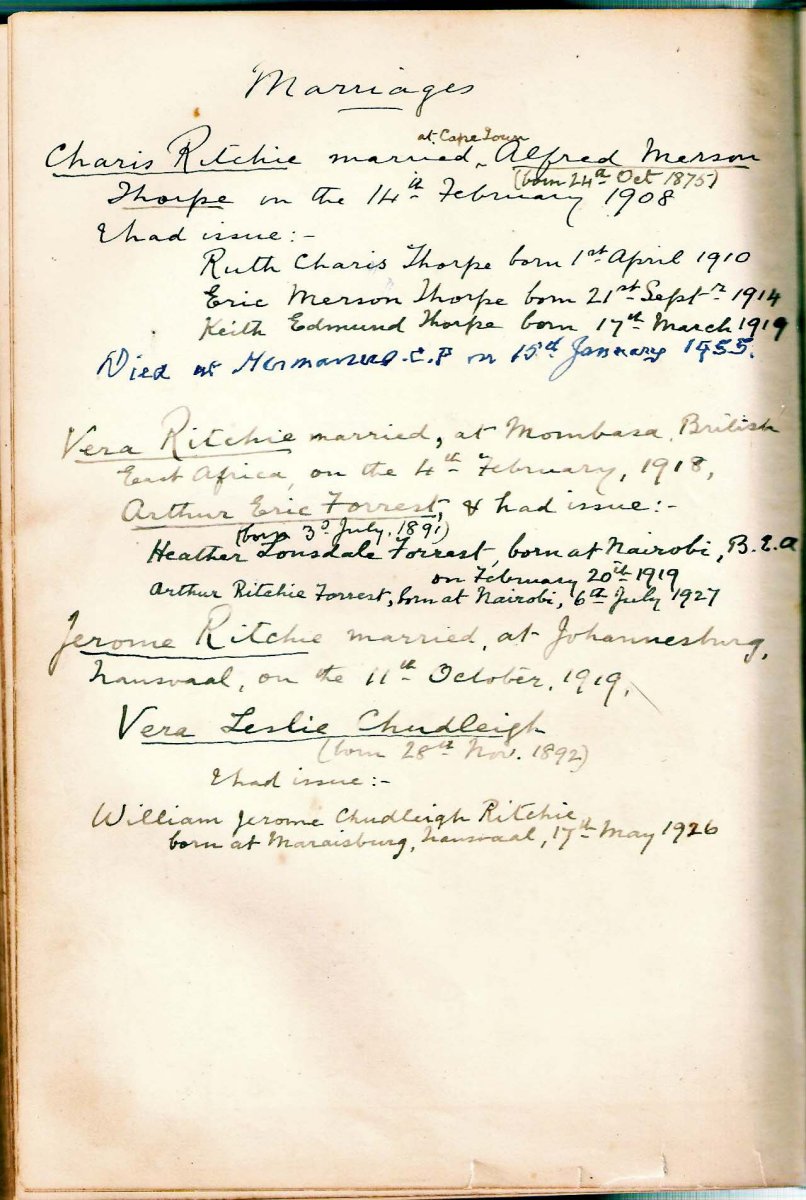 Marriages
at Cape Town
Charis Ritchie married, Alfred Merson
(born 24th Oct 1875)
Thorpe on the 14th February 1908
& had issue:-
Ruth Charis Thorpe born 1st April 1910
Eric Merson Thorpe born 21st Septr 1914
Keith Edmund Thorpe born 17th March 1919
Died at Hermanus C.P on 15th January 1955.
Vera Ritchie married, at Mombasa, British
East Africa, on the 4th February, 1918,
Arthur Eric Forrest, & had issue:-
(born 3d July, 1891)
Heather Lonsdale Forrest, born at Nairobi, B.E.A
on February 20th 1919
Arthur Ritchie Forrest, born at Nairobi, 6th July 1927
Jerome Ritchie married, at Johannesburg,
Transvaal, on the 11th October, 1919,
Vera Leslie Chudleigh
(born 28th Nov. 1892)
& had issue:-
William Jerome Chudleigh Ritchie,
born at Maraisburg, Transvaal, 17th May 1926